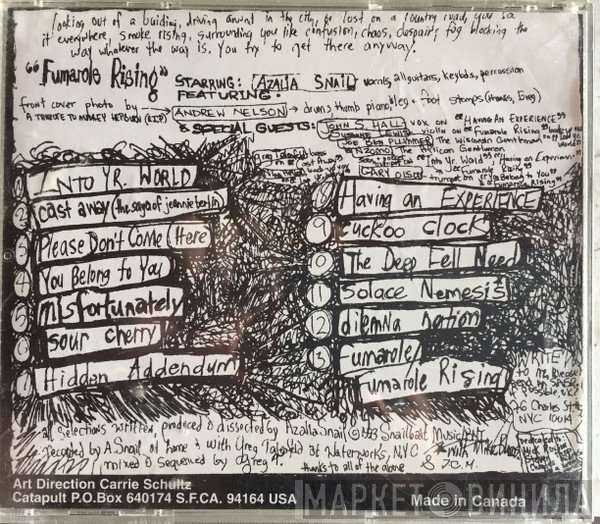 looking out of a buiding, driving around in the city, or lost on a country road, you see
it everywhere, smoke rising, surrounding you like confusion, chaos, despair, fog blocking the
way whatever the way is. You try to get there anyway.
"Fumarole Rising" STARRING: AZALIA SNAIL vocals, all guitars, keybds, percussion
FEATURING:
front cover photo by
A TRIBUTE TO AUDREY HEPBURN (R.I.P.)
ANDREW NELSON → drums, thumb piano, leg + foot stomps
& SPECIAL GUESTS:
JOHN S. HALL vox on "HAVING AN EXPERIENCE"
SUZANNE LEWIS violin on "Fumarole Rising"
GARY OLSON trumpet on "You Belong to You"
& "Fumarole Rising"
1 INTO YR. WORLD
2 cast away (the saga of jeannie berlin)
3 Please Don't Come Here
4 You Belong to You
5 misfortunately
6 sour cherry
7 Hidden Addendum
8 Having an EXPERIENCE
9 cuckoo clock
10 The Deep Fell Need
11 Solace Nemesis
12 dilemna nation
13 Fumarole/
Fumarole Rising
WRITE
to me please
76 Charles St.
NYC 10014
all selections written, produced & dissected by Azalia Snail © 1993 Snailboat Music BMI
recorded by A. Snail at home & with Greg Talenfeld at Waterworks, NYC
mixed & sequenced by Greg T.
thanks to all of the above
Art Direction Carrie Schultz
Catapult P.O.Box 640174 S.F.CA. 94164 USA
Made in Canada
МАРКЕТ ВИНИЛА